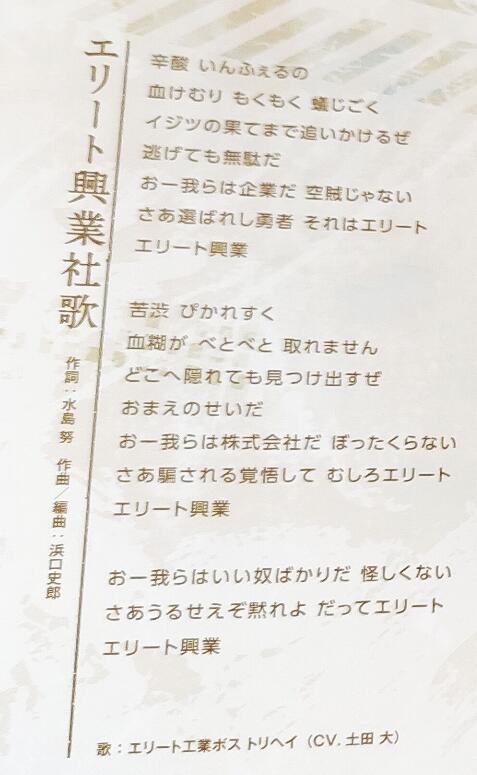 エリート興業社歌
作詞:水島 努 作曲/編曲:浜口史郎
辛酸 いんふぇるの
血けむり もくもく 蟻じごく
イジツの果てまで追いかけるぜ
逃げても無駄だ
おー我らは企業だ 空賊じゃない
さあ選ばれし勇者 それはエリート
エリート興業
苦渋 ぴかれすく
血糊が べとべと 取れません
どこへ隠れても見つけ出すぜ
おまえのせいだ
おー我らは株式会社だ ぼったくらない
さあ騙される覚悟して むしろエリート
エリート興業
おー我らはいい奴ばかりだ 怪しくない
さあうるせえぞ黙れよ だってエリート
エリート興業
歌:エリート工業ボス トリヘイ(CV.土田 大)